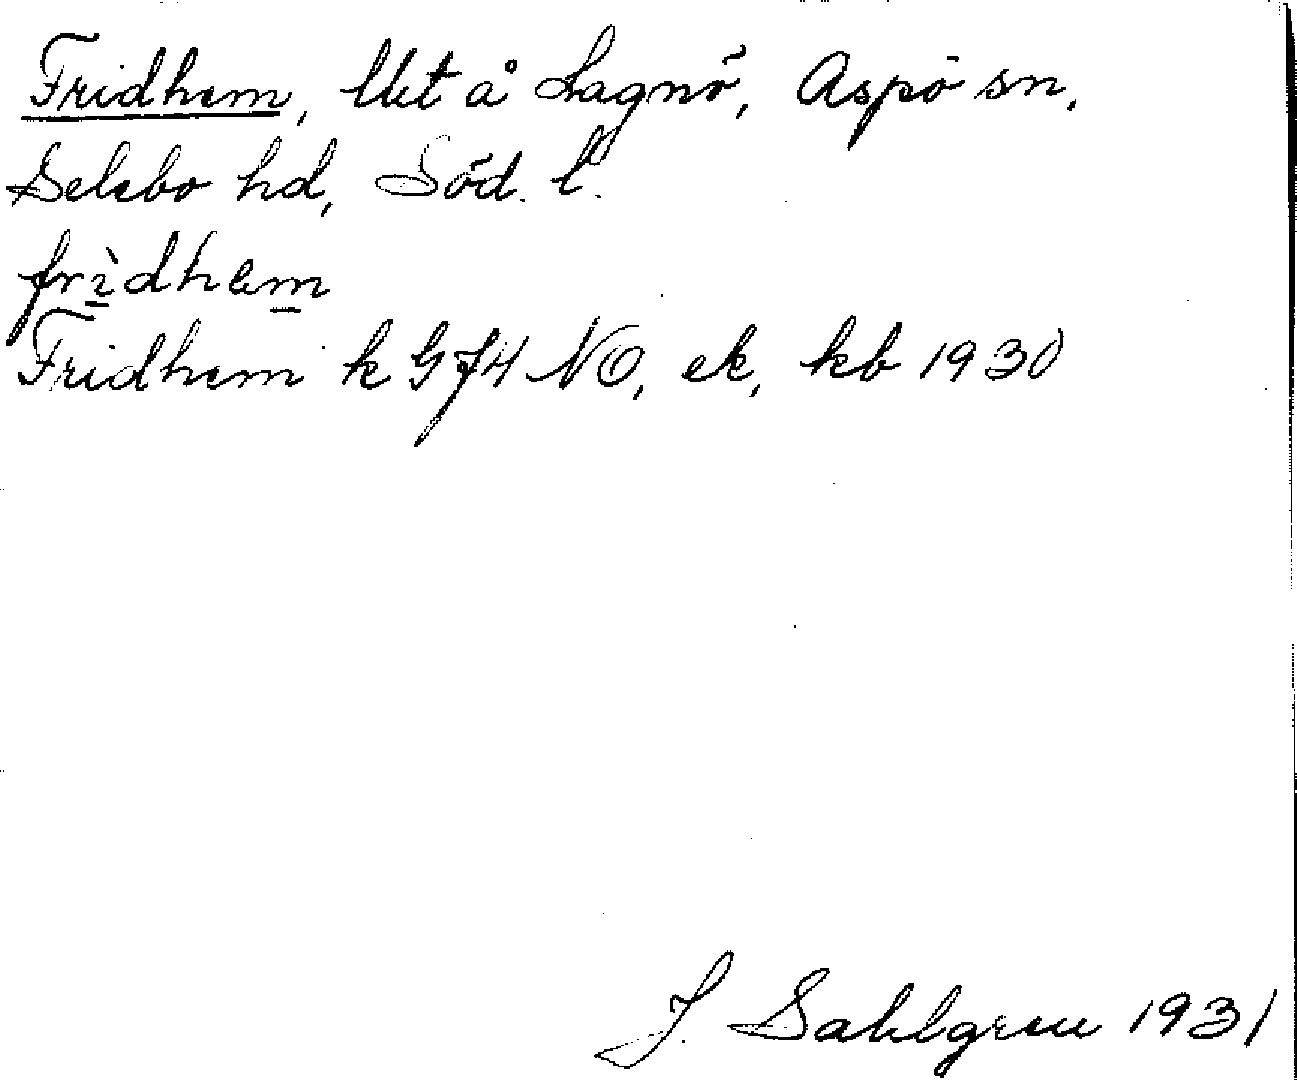 Fridhem, lht å Lagnö, Aspö sn,
Selebo hd, Söd. l.
fridhem
Fridhem k GJ4 NO, ek, kb 1930
J. Sahlgren 1931